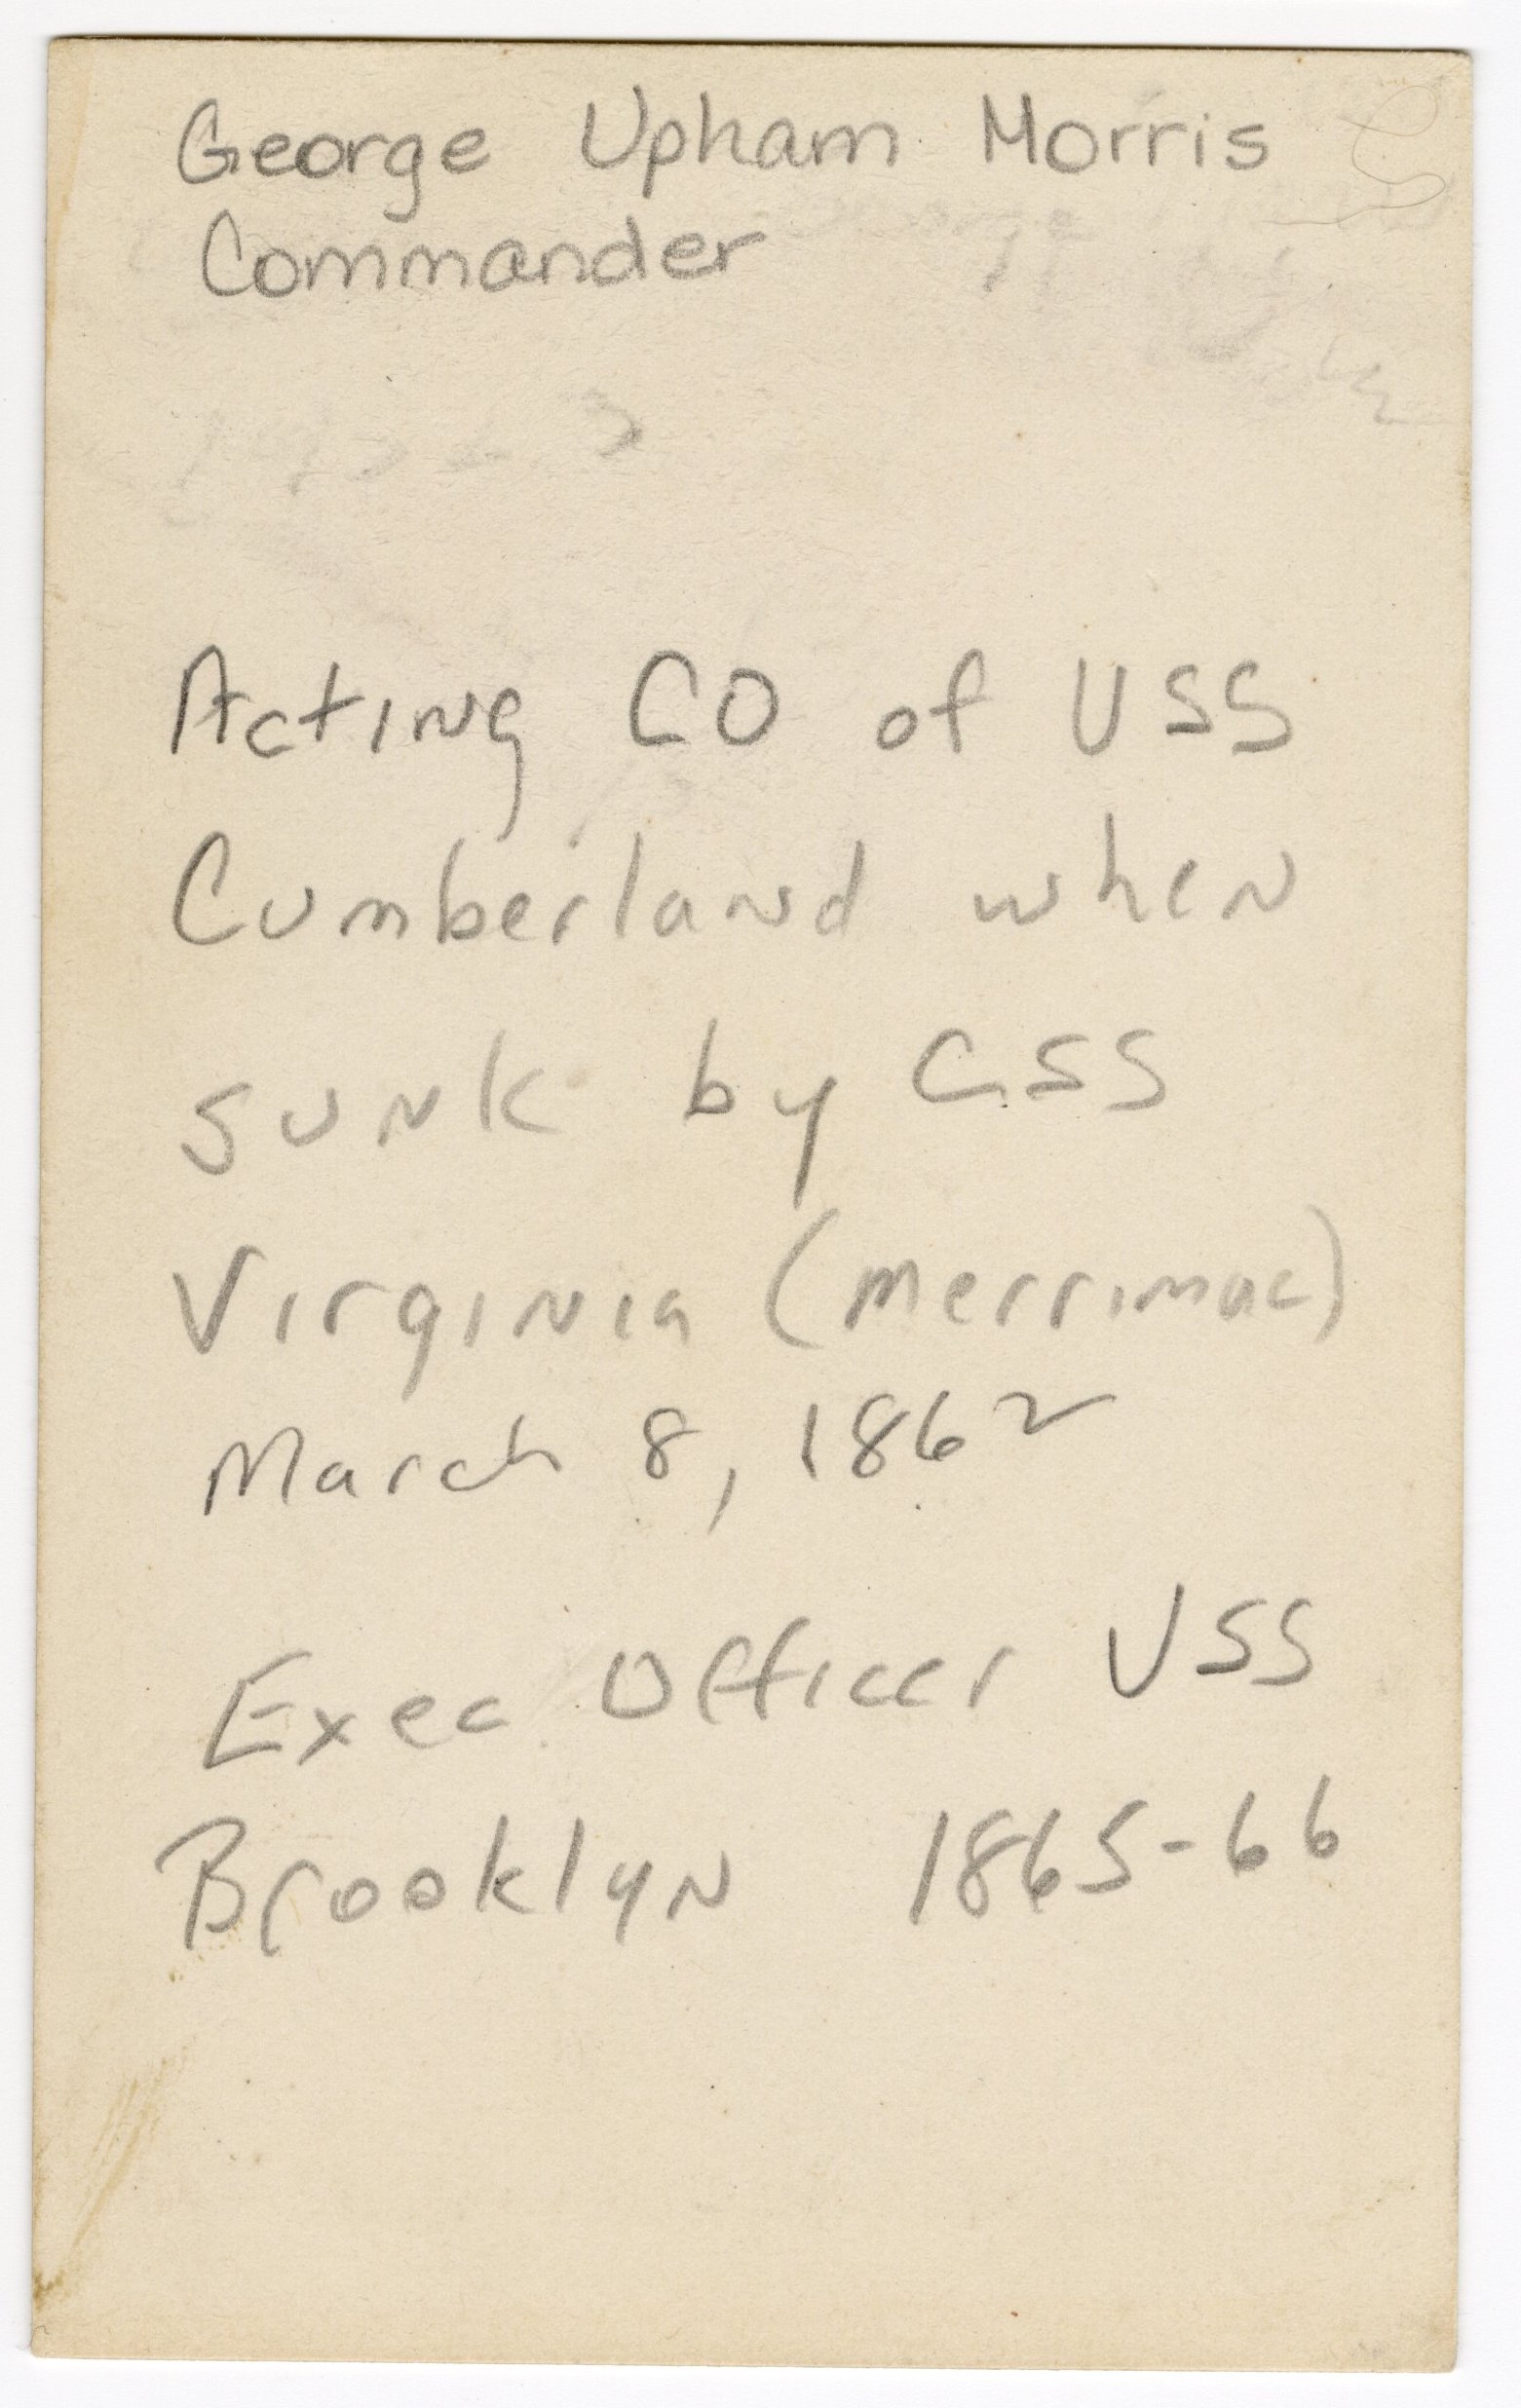 George Upham Morris
Commander
Acting CO of USS
Cumberland when
sunk by CSS
Virginia (Merrimac)
March 8, 1862
Exec Officer USS
Brooklyn 1865-66